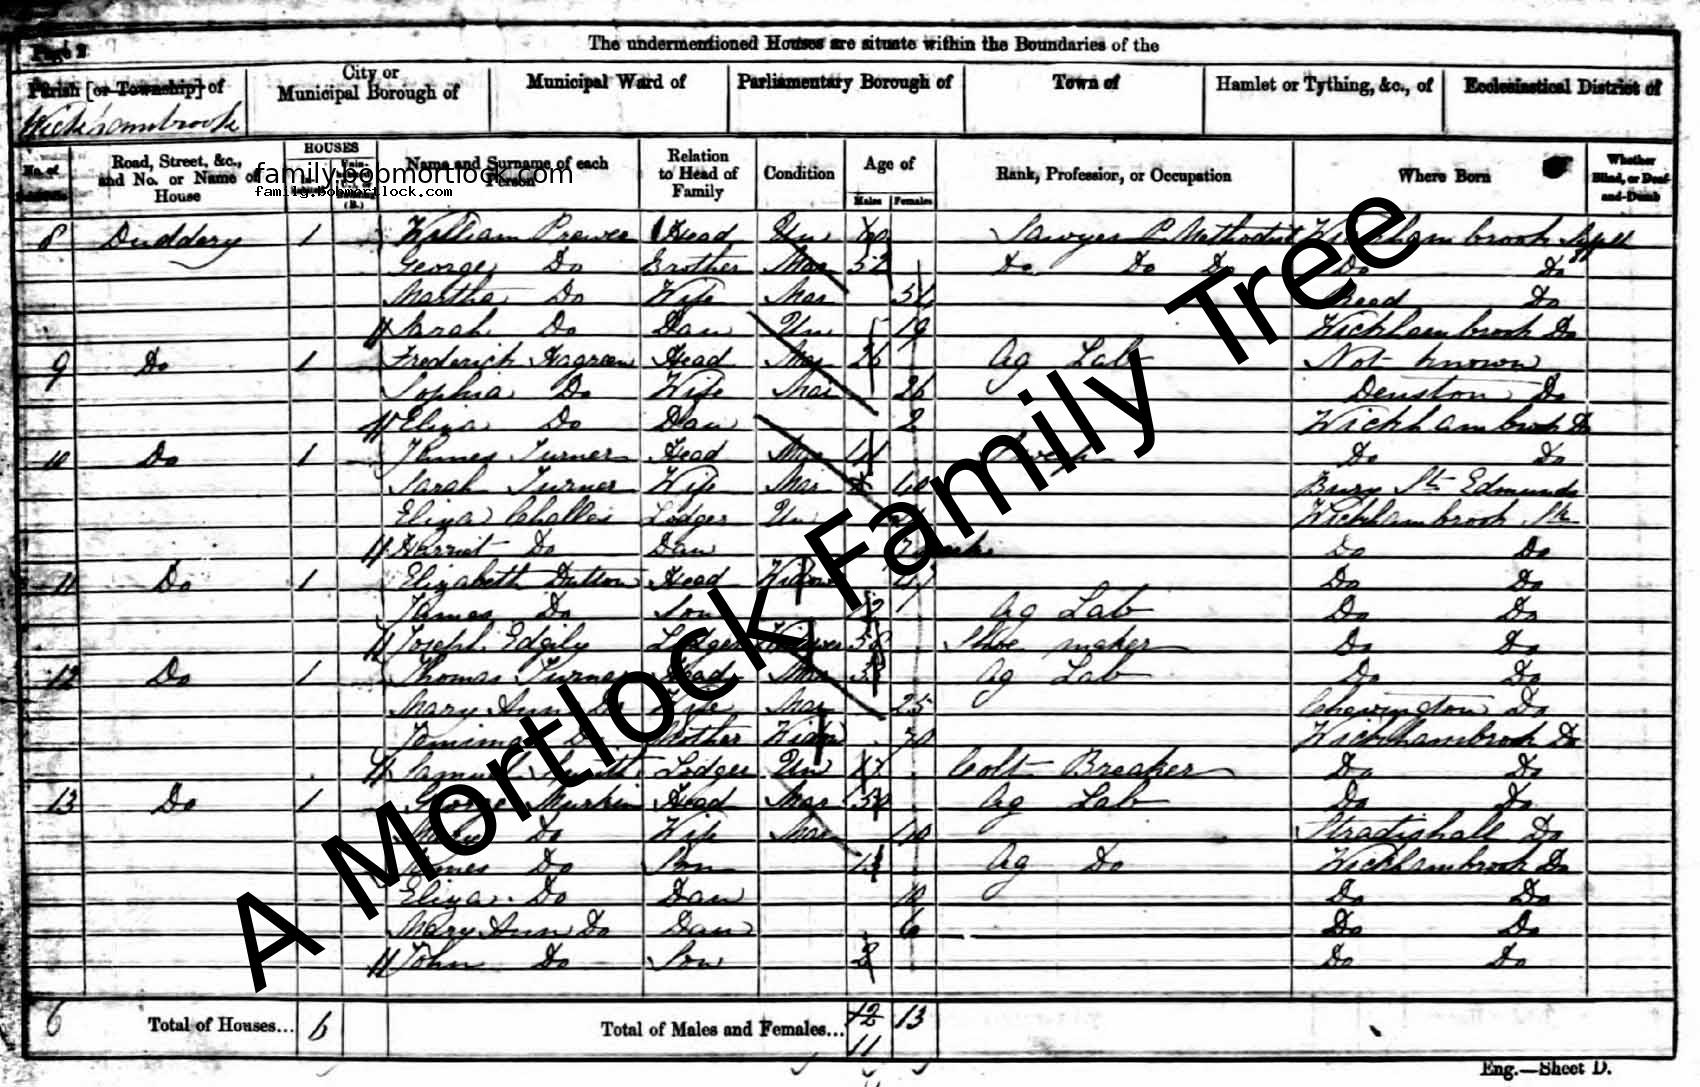 Page 2
The undermentioned Houses are situate within the Boundaries of the
Parish [or Township] of
City or Municipal Borough of
Municipal Ward of
Parliamentary Borough of
Town of
Hamlet or Tything, &c., of
Ecclesiastical District of
Wickhambrook
No. of
Road, Street, &c., and No. or Name of House
HOUSES
Name and Surname of each Person
Relation to Head of Family
Condition
Age of
Males
Females
Rank, Profession, or Occupation
Where Born
Whether Blind, or Deaf-and-Dumb
family.bobmortlock.com
family.bobmortlock.com
8 Duddery 1 William Head Un Sawyer P. Methodist Wickhambrook
George Do Brother Mar 52 Do Do Do Do Do
Martha Do Wife Mar Do
Sarah Do Dau Un 19 Wickhambrook Do
9 Do 1 Frederick Hagreen Head Mar 26 Ag Lab Not known
Sophia Do Wife Mar 26 Denston Do
Eliza Do Dau 2 Wickhambrook Do
10 Do 1 James Turner Head Mar Do Do
Sarah Turner Wife Mar Bury St Edmunds
Eliza Challes Lodger Un Wickhambrook
Harriet Do Dau Do Do
11 Do 1 Elizabeth Dutton Head Widow Do Do
James Do Son Ag Lab Do Do
Joseph Edgily Lodger Widower Shoe maker Do Do
12 Do 1 Thomas Turner Head Mar Ag Lab Do Do
Mary Ann Do Wife Mar 25 Chevington Do
Jemima Do Mother Widow 70 Wickhambrook Do
Samuel Smith Lodger Un 17 Colt Breaker Do Do
13 Do 1 George Murkin Head Mar Ag Lab Do Do
Do Wife Mar 40 Stradishall Do
James Do Son Ag Do Wickhambrook Do
Eliza Do Dau 10 Do Do
Mary Ann Do Dau 6 Do Do
John Do Son Do Do
6 Total of Houses... 6 Total of Males and Females... 12 13
11
Eng.—Sheet D.
A Mortlock Family Tree